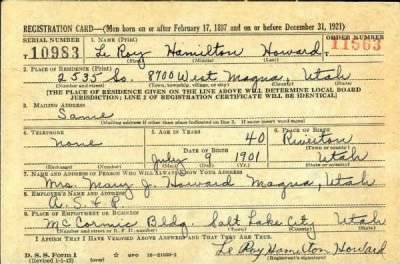 REGISTRATION CARD—(Men born on or after February 17, 1897 and on or before December 31, 1921)
SERIAL NUMBER 1. NAME (Print) ORDER NUMBER
T 10983 Le Roy Hamilton Howard 11563
(First) (Middle) (Last)
2. PLACE OF RESIDENCE (Print)
2535 So. 8700 West Magna, Utah
(Number and street) (Town, township, village, or city) (County) (State)
[THE PLACE OF RESIDENCE GIVEN ON THE LINE ABOVE WILL DETERMINE LOCAL BOARD
JURISDICTION; LINE 2 OF REGISTRATION CERTIFICATE WILL BE IDENTICAL]
3. MAILING ADDRESS
Same
[Mailing address if other than place indicated on line 2. If same insert word same]
4. TELEPHONE 5. AGE IN YEARS 6. PLACE OF BIRTH
None 40 Riverton
DATE OF BIRTH (Town or county)
July 9 1901 Utah
(Exchange) (Number) (Mo.) (Day) (Yr.) (State or country)
7. NAME AND ADDRESS OF PERSON WHO WILL ALWAYS KNOW YOUR ADDRESS
Mrs. Mary J. Howard Magna, Utah
8. EMPLOYER'S NAME AND ADDRESS
A. S. & R.
9. PLACE OF EMPLOYMENT OR BUSINESS
McCormic Bldg. Salt Lake City Utah
(Number and street or R. F. D. number) (Town) (County) (State)
I AFFIRM THAT I HAVE VERIFIED ABOVE ANSWERS AND THAT THEY ARE TRUE.
D. S. S. Form 1
(Revised 1-1-42) (over) Le Roy Hamilton Howard